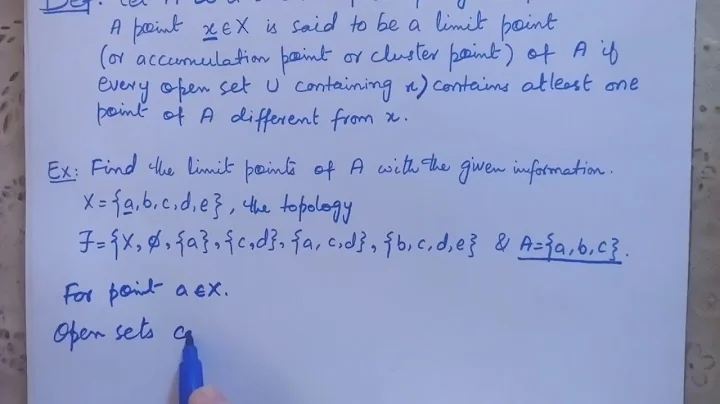 A point x∈X is said to be a limit point
(or accumulation point or cluster point) of A if
every open set U containing x) contains atleast one
point of A different from x.
Ex: Find the limit points of A with the given information.
X={a,b,c,d,e}, the topology
J={X, ∅, {a}, {c,d}, {a,c,d}, {b,c,d,e} & A={a,b,c}.
For point a∈X.
Open sets c